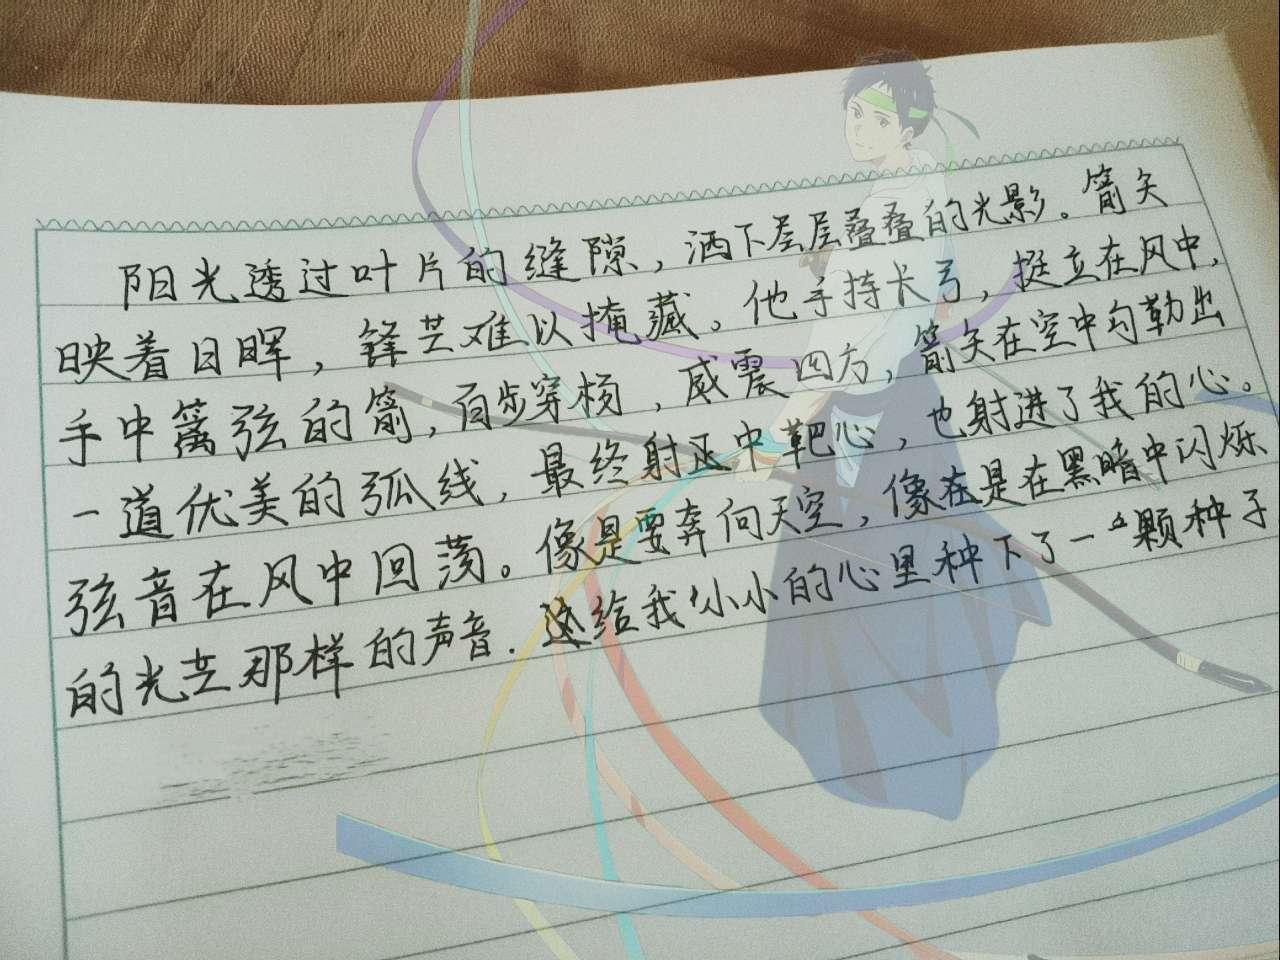 阳光透过叶片的缝隙，洒下层层叠叠的光影。箭矢
映着日晖，锋芒难以掩藏。他手持长弓，挺立在风中，
手中篱弦的箭，百步穿杨，威震四方，箭矢在空中勾勒出
一道优美的弧线，最终射正中靶心，也射进了我的心。
弦音在风中回荡。像是要奔向天空，像在是在黑暗中闪烁
的光芒那样的声音．还给我小小的心里种下了一颗种子